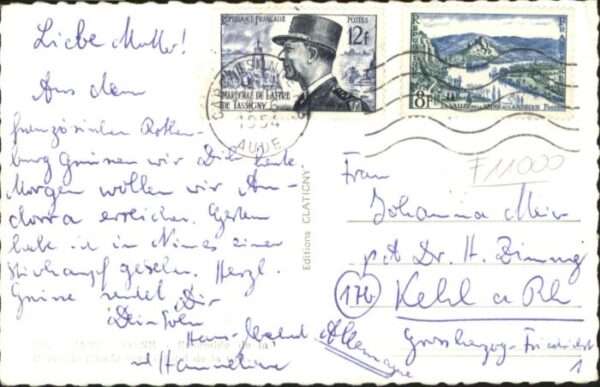 Liebe Mutter!
Aus dem
französischen Rothen-
burg Grüssen wir Dich heute.
Morgen wollen wir An-
dorra erreichen. Gestern
habe ich in Nimes einen
Stierkampf gesehen. Herzl.
Grüsse sendet Dir
Dein Sohn
Hans-
und Hannelore
REPUBLIQUE FRANÇAISE POSTES
12f
MARÉCHAL DE LATTRE
DE TASSIGNY
8F
1954
AUDE
Editions CLATIGNY
F 11000
Frau
Johanna Meir
Dr. H.
17b
Kehl a Rh
Grossherzog-Friedrichstr
1
Allemagne